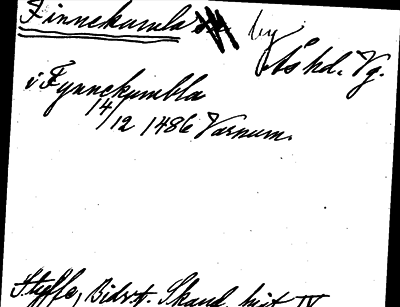 Finnekumla by
Ås hd. Vg.
i Fynnekumbla
14/12 1486 Varnum.
Styffe, Bidr. t. Skand. hist IV